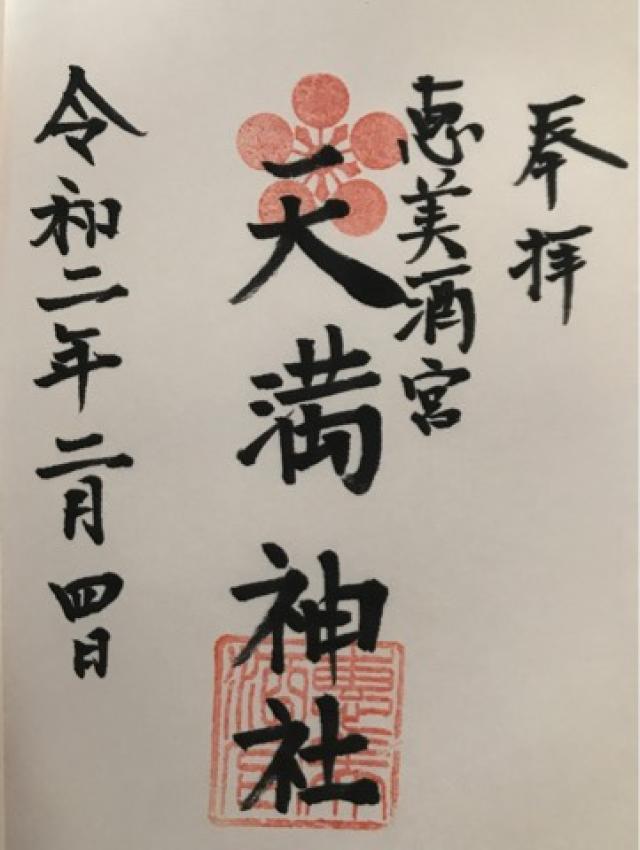 奉拝
恵美酒宮
天満神社
令和二年二月四日